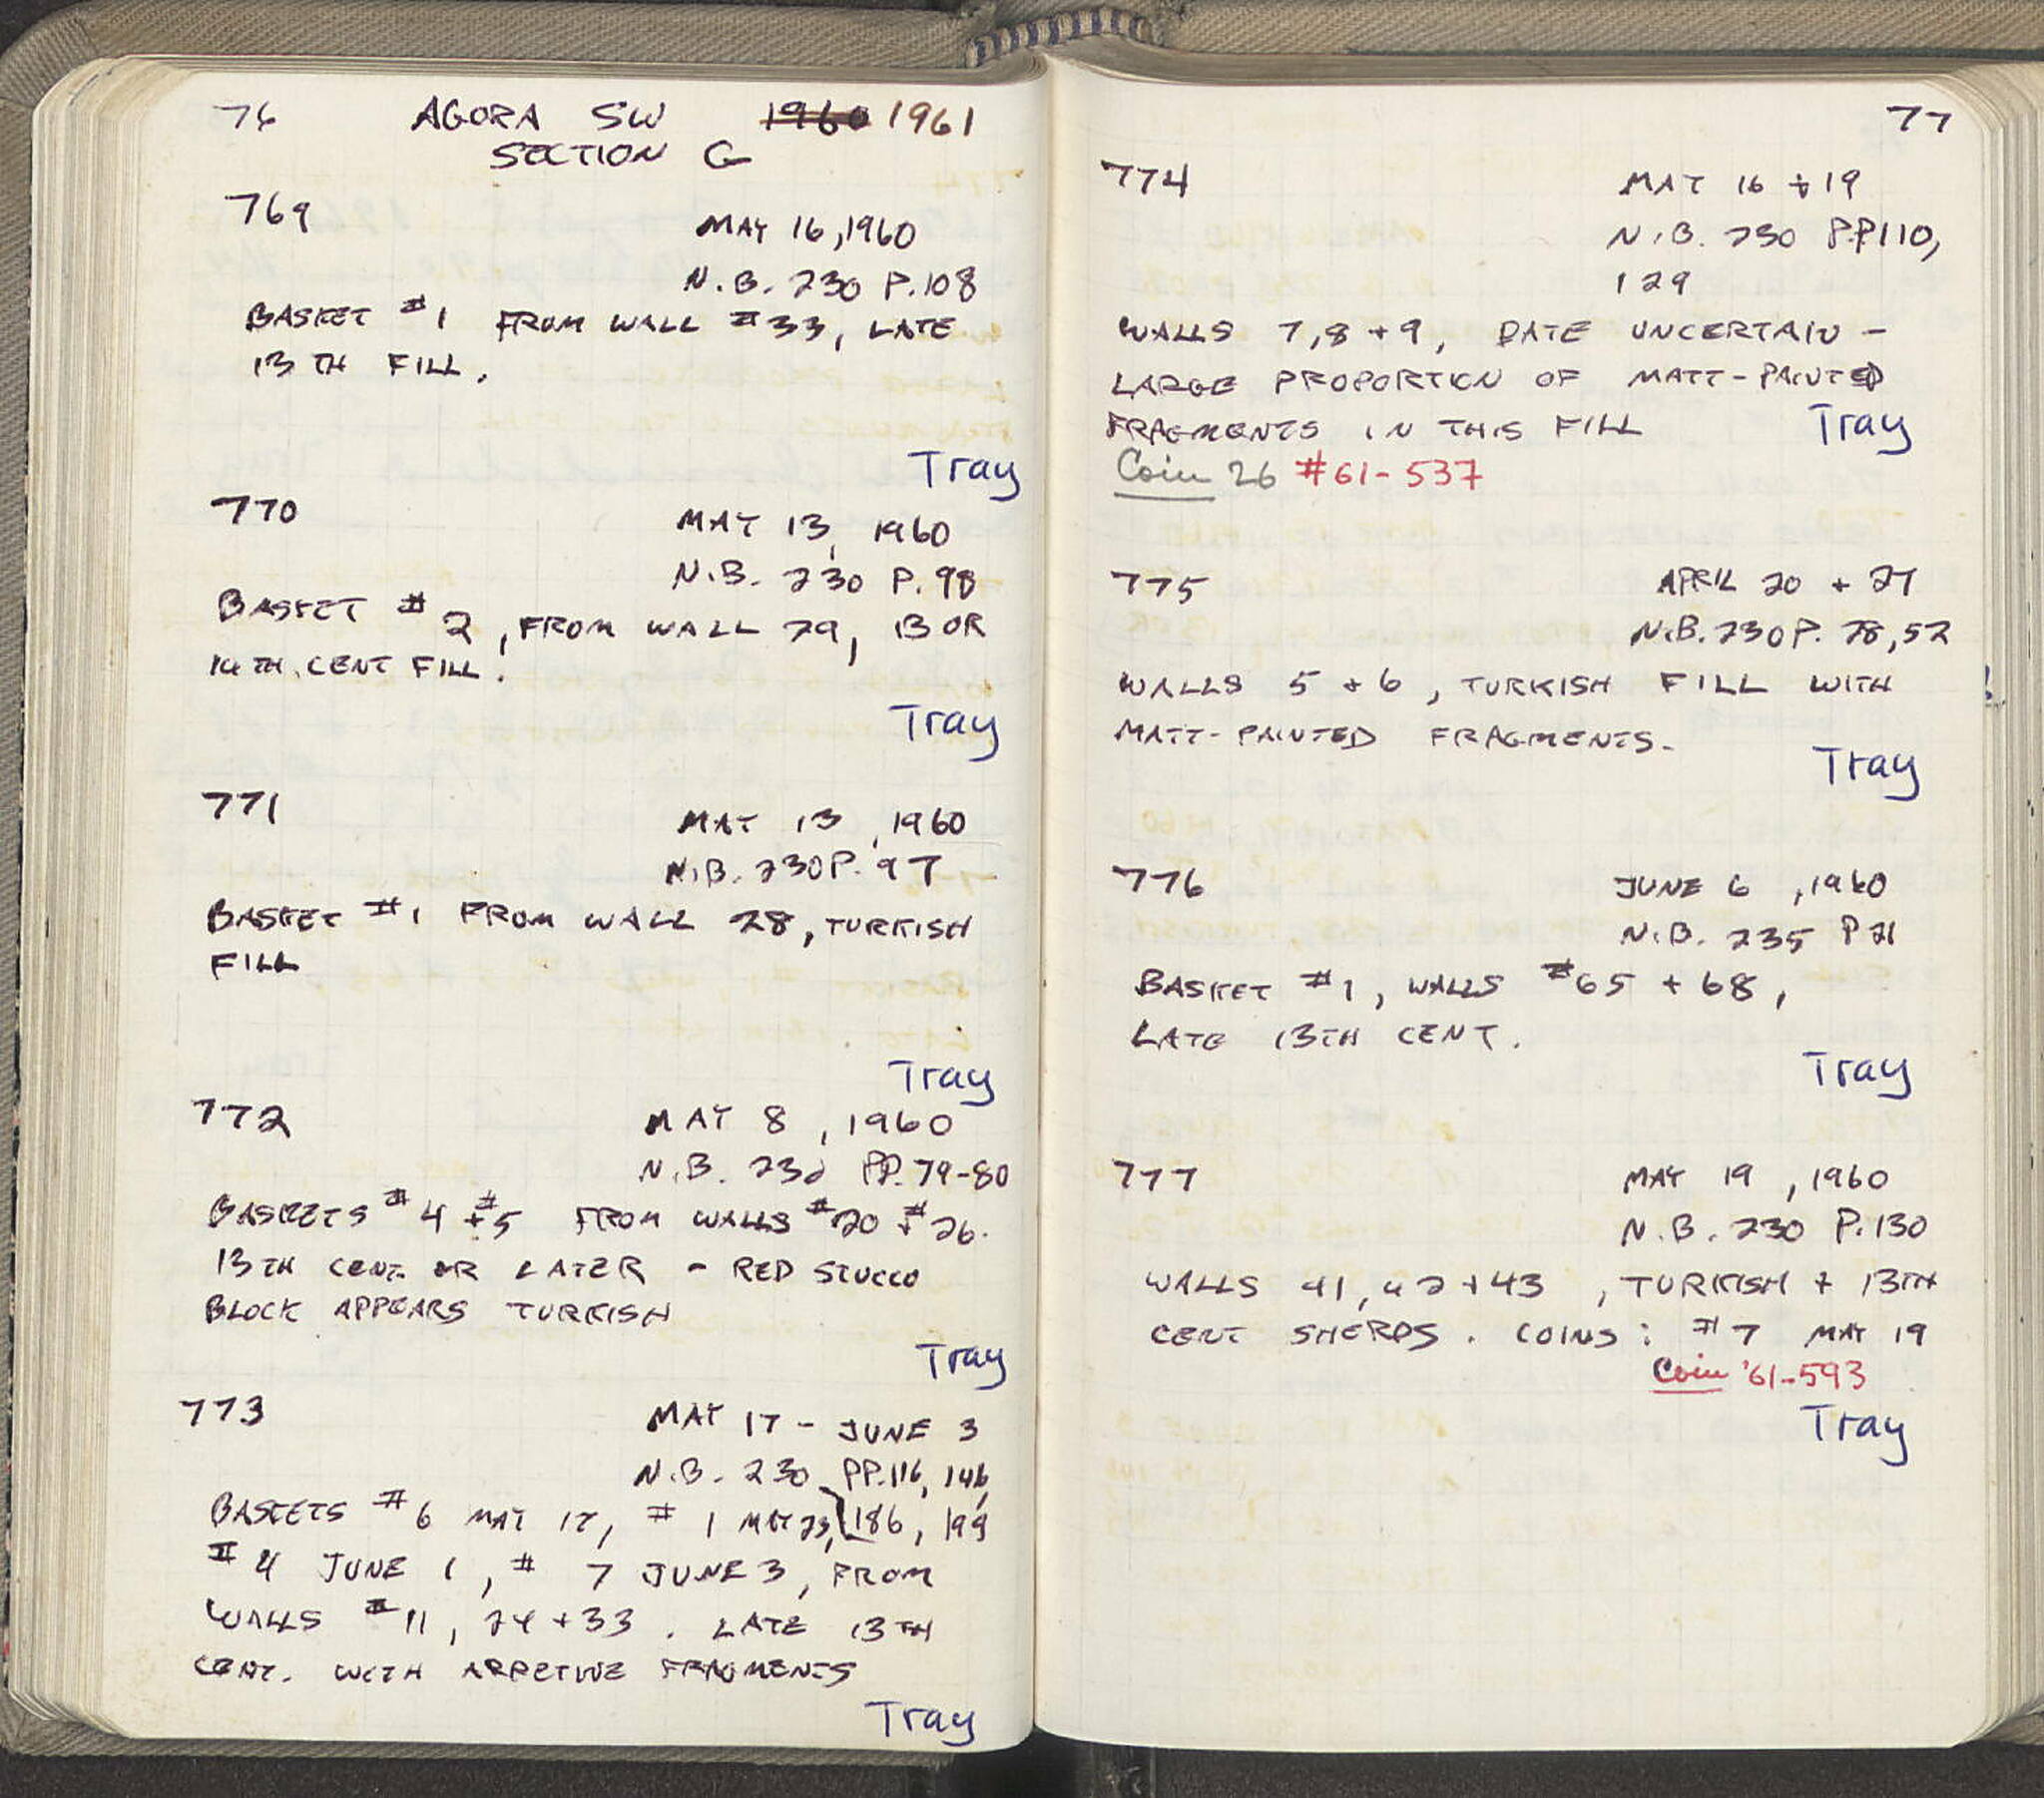 76 AGORA SW 1960 1961
SECTION G
769
MAY 16, 1960
N.B. 230 P. 108
BASKET #1 FROM WALL #33, LATE
13TH FILL.
Tray
770
MAY 13, 1960
N.B. 230 P. 98
BASKET #2, FROM WALL 29, 13 OR
14TH. CENT FILL.
Tray
771
MAY 13, 1960
N.B. 230 P. 97
BASKET #1 FROM WALL 28, TURKISH
FILL
Tray
772
MAY 8, 1960
N.B. 230 PP. 79-80
BASKETS #4 + #5 FROM WALLS #20 + #26.
13TH CENT. OR LATER - RED STUCCO
BLOCK APPEARS TURKISH
Tray
773
MAY 17 - JUNE 3
N.B. 230 PP. 116, 146,
186, 199
BASKETS #6 MAY 17, #1 MAY 23,
#4 JUNE 1, #7 JUNE 3, FROM
WALLS #11, 24 + 33. LATE 13TH
CENT. WITH ARRETINE FRAGMENTS
Tray
77
774
MAY 16 + 19
N.B. 230 PP 110,
129
WALLS 7, 8 + 9, DATE UNCERTAIN -
LARGE PROPORTION OF MATT-PAINTED
FRAGMENTS IN THIS FILL Tray
Coin 26 #61-537
775
APRIL 20 + 27
N.B. 230 P. 28, 52
WALLS 5 + 6, TURKISH FILL WITH
MATT-PAINTED FRAGMENTS.
Tray
776
JUNE 6, 1960
N.B. 235 P 21
BASKET #1, WALLS #65 + 68,
LATE 13TH CENT.
Tray
777
MAY 19, 1960
N.B. 230 P. 130
WALLS 41, 42 + 43, TURKISH + 13TH
CENT SHERDS. COINS: #7 MAY 19
Coin '61-593
Tray